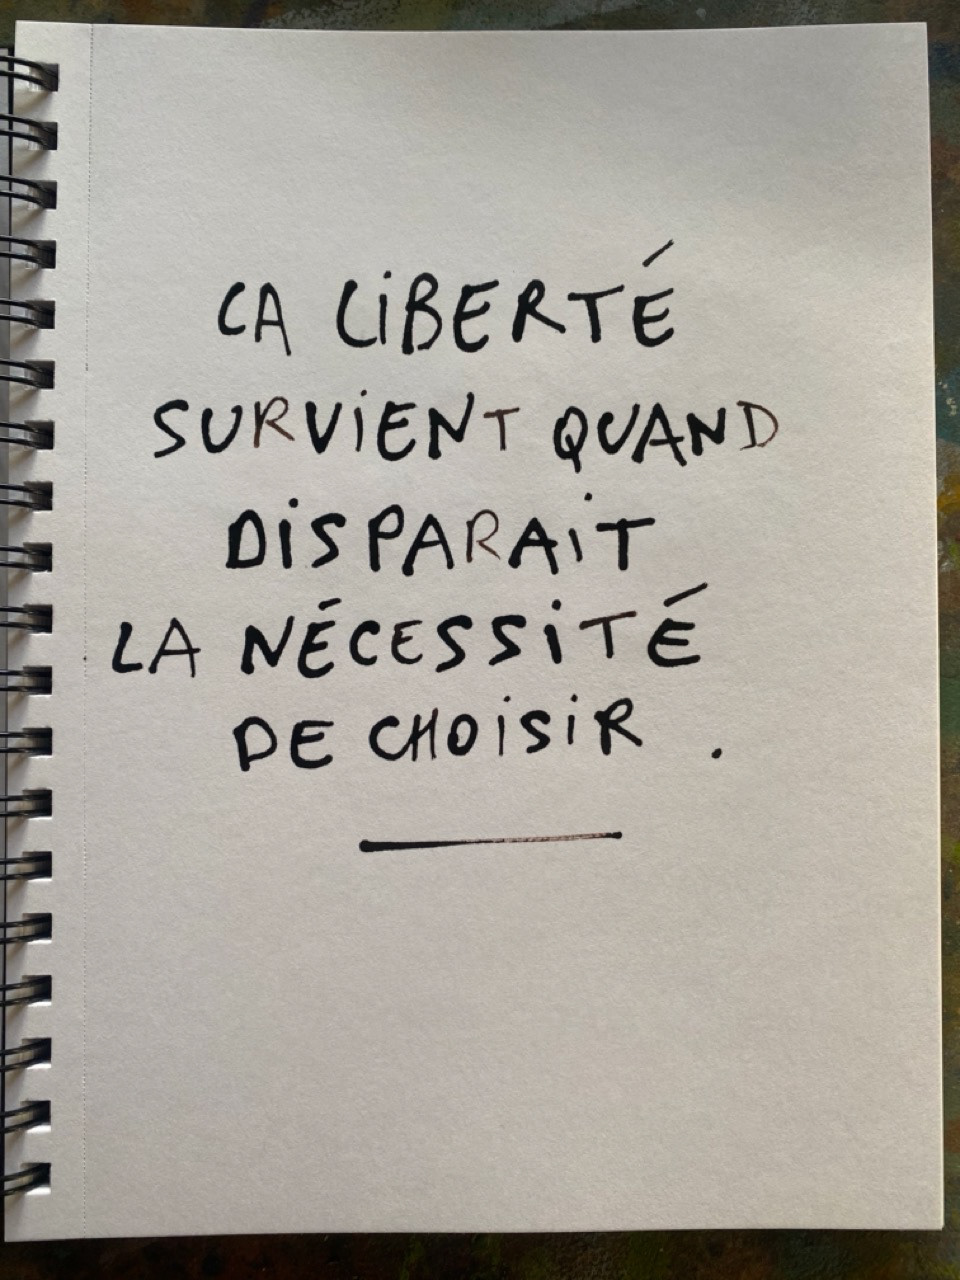 LA LiBERTÉ
SURViENT QUAND
DiSPARAiT
LA NÉCESSiTÉ
DE CHOiSiR .